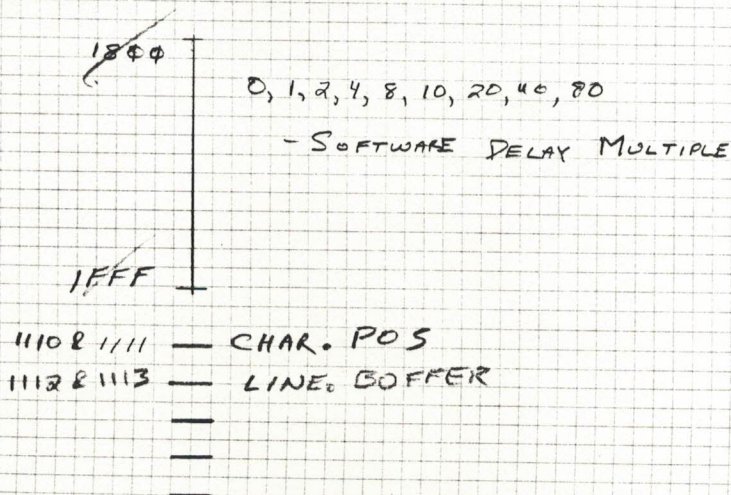 18ΦΦ
0, 1, 2, 4, 8, 10, 20, 40, 80
- SOFTWARE DELAY MULTIPLE
1FFF
1110 & 1111 — CHAR. POS
1112 & 1113 — LINE. BOFFER